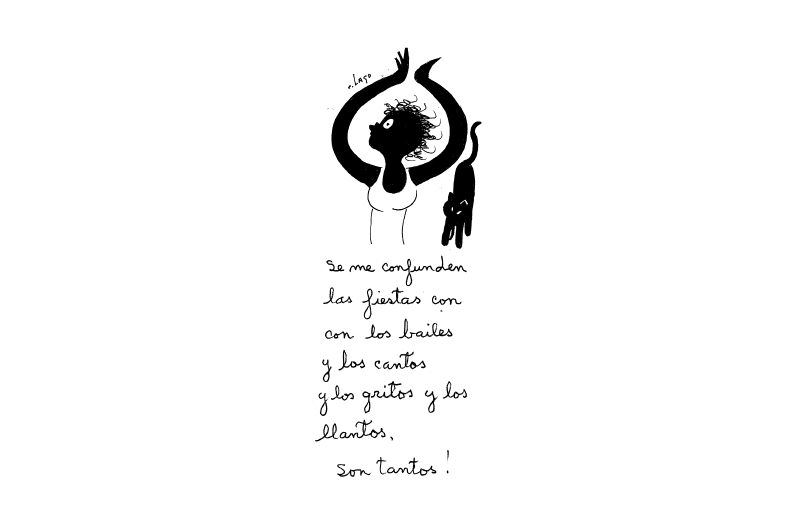 e. Lago
Se me confunden
las fiestas con
con los bailes
y los cantos
y los gritos y los
llantos,
son tantos!